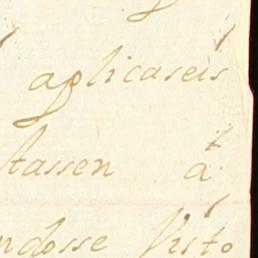 aplicaseis
tassen á
ndosse Visto